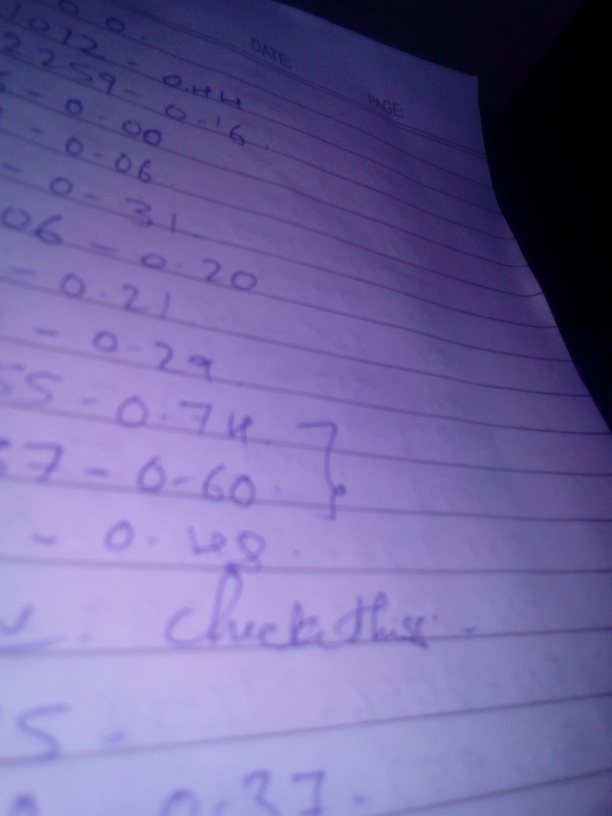 0 0.
DATE:
PAGE:
1012 - 0.44
2259 - 0.16.
- 0.00
- 0.06
- 0.31
06 - 0.20
- 0.21
- 0.29
55 - 0.74.
57 - 0.60.
- 0.48.
Check this -
5 -
0.37 -